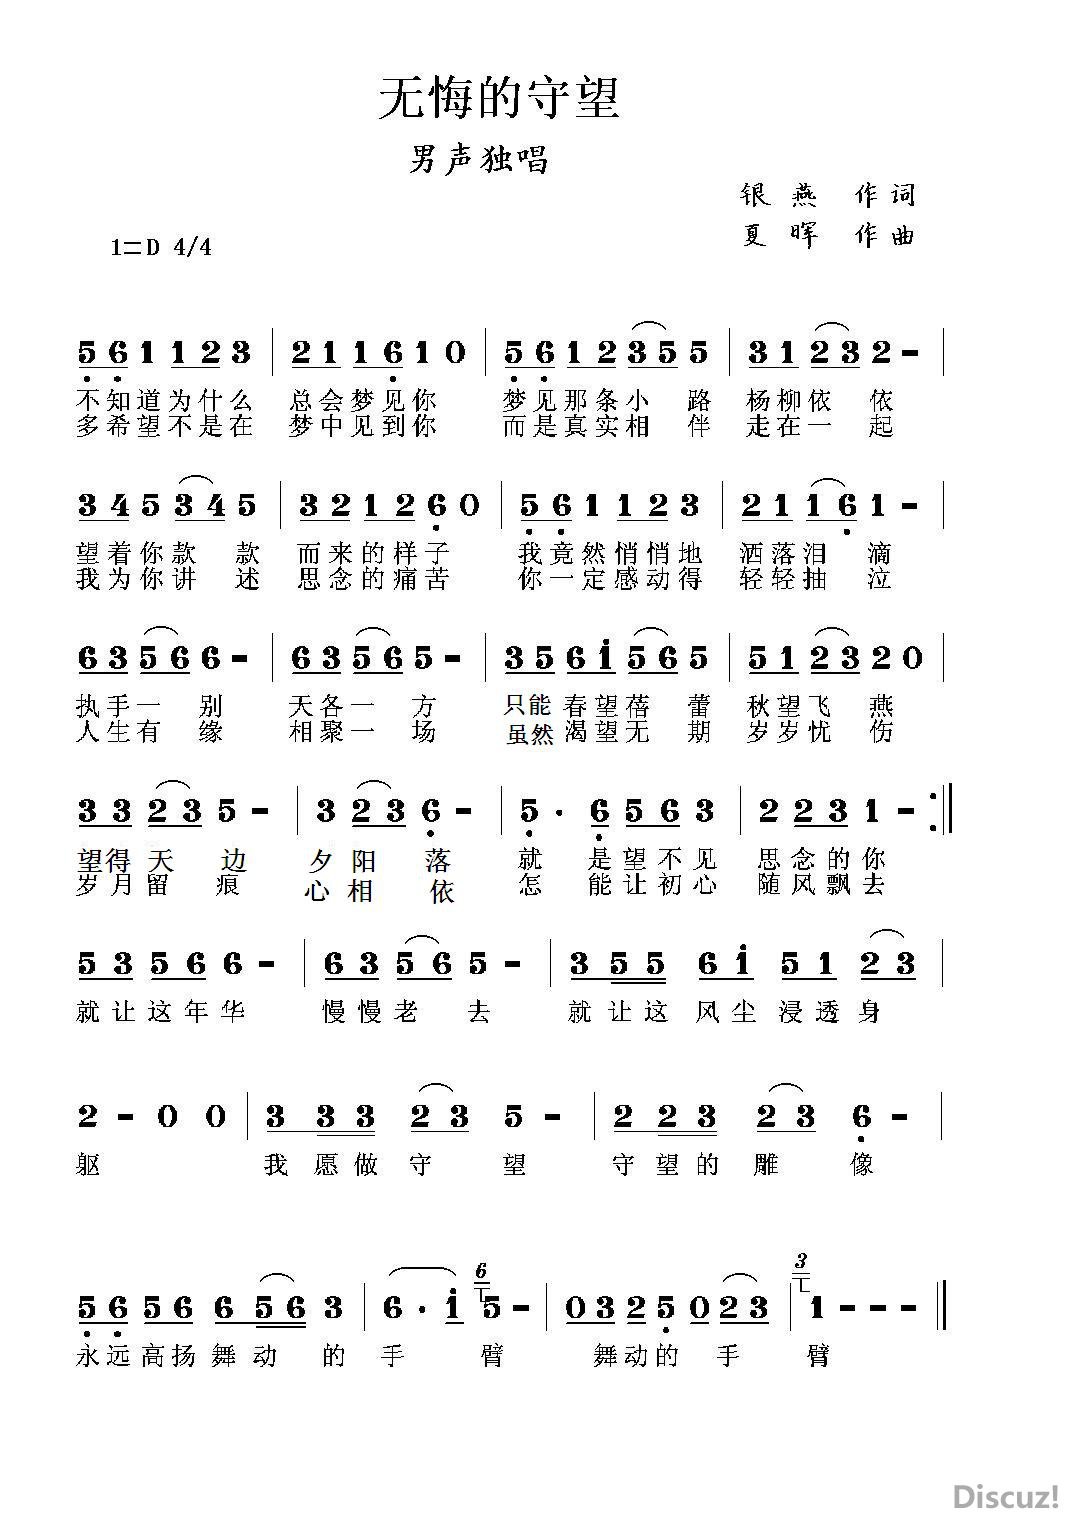 无悔的守望
男声独唱
银燕 作词
夏晖 作曲
1=D 4/4
5 6 1 1 2 3 | 2 1 1 6 1 0 | 5 6 1 2 3 5 5 | 3 1 2 3 2 - |
不知道为什么 总会梦见你 梦见那条小路 杨柳依依
多希望不是在 梦中见到你 而是真实相伴 走在一起
3 4 5 3 4 5 | 3 2 1 2 6 0 | 5 6 1 1 2 3 | 2 1 1 6 1 - |
望着你款款 而来的样子 我竟然悄悄地 洒落泪滴
我为你讲述 思念的痛苦 你一定感动得 轻轻抽泣
6 3 5 6 6 - | 6 3 5 6 5 - | 3 5 6 i 5 6 5 | 5 1 2 3 2 0 |
执手一别 天各一方 只能春望蓓蕾 秋望飞燕
人生有缘 相聚一场 虽然渴望无期 岁岁忧伤
3 3 2 3 5 - | 3 2 3 6 - | 5 · 6 5 6 3 | 2 2 3 1 - :||
望得天边 夕阳落 就是望不见 思念的你
岁月留痕 心相依 怎能让初心 随风飘去
5 3 5 6 6 - | 6 3 5 6 5 - | 3 5 5 6 i 5 1 2 3 |
就让这年华 慢慢老去 就让这风尘浸透身
2 - 0 0 | 3 3 3 2 3 5 - | 2 2 3 2 3 6 - |
躯 我愿做守望 守望的雕像
6 3
5 6 5 6 6 5 6 3 | 6 · i 5 - | 0 3 2 5 0 2 3 | 1 - - - ||
永远高扬舞动的手臂 舞动的手臂
Discuz!